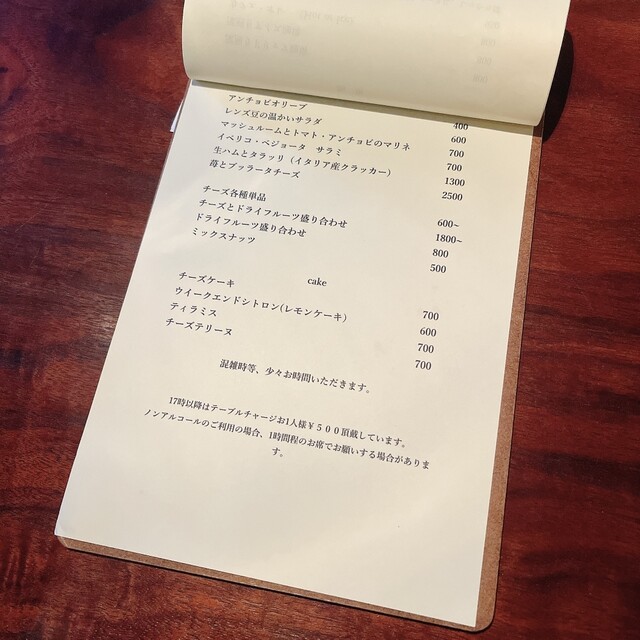 アンチョビオリーブ 400
レンズ豆の温かいサラダ 600
マッシュルームとトマト・アンチョビのマリネ 700
イベリコ・ベジョータ サラミ 700
生ハムとタラッリ（イタリア産クラッカー） 1300
苺とブッラータチーズ 2500
チーズ各種単品 600~
チーズとドライフルーツ盛り合わせ 1800~
ドライフルーツ盛り合わせ 800
ミックスナッツ 500
cake
チーズケーキ 700
ウイークエンドシトロン(レモンケーキ) 600
ティラミス 700
チーズテリーヌ 700
混雑時等、少々お時間いただきます。
17時以降はテーブルチャージお1人様￥５００頂戴しています。
ノンアルコールのご利用の場合、1時間程のお席でお願いする場合がありま
す。